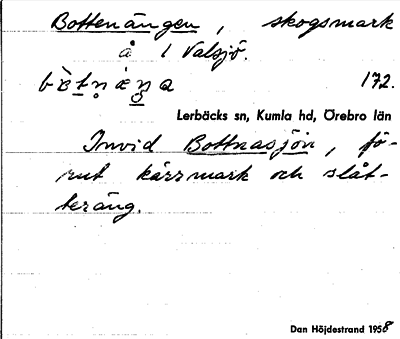 Bottenängen, skogsmark
å 1 Valsjö.
172.
Lerbäcks sn, Kumla hd, Örebro län
Invid Bottnasjön, fö-
rut kärrmark och slåt-
teräng.
Dan Höjdestrand 1958